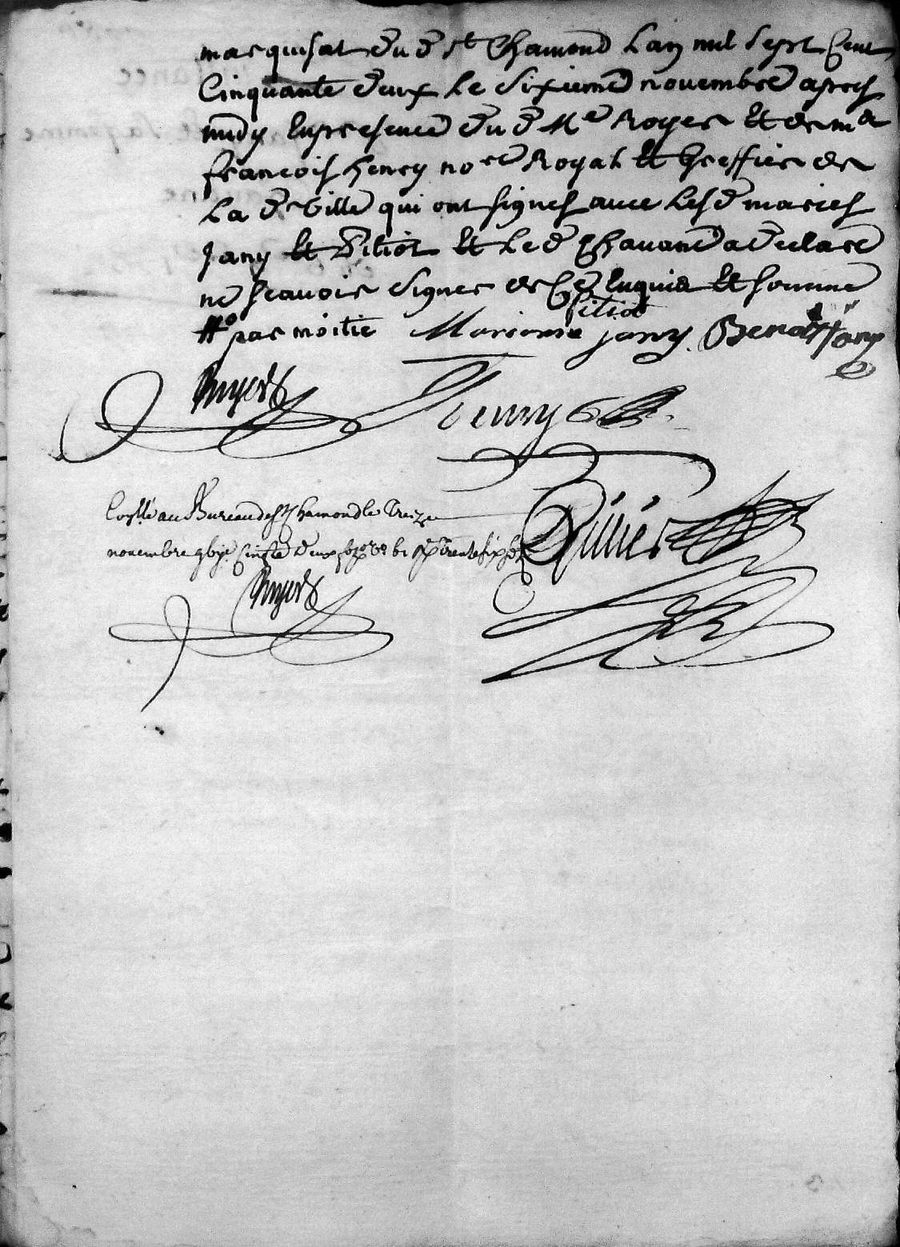 marquisat dud St Chamond Lan mil sept Cent
Cinquante deux le sixieme novembre apres
midy En presence dud Me Royer Et de me
francois henry nore Royal Et greffier de
La de Ville qui ont signes avec Lesd maries
Jany Et Pitiot Et Led Chavane a declare
ne scavoir signer de Ce Enquis Et somme
pitiot
par moitie Marianne jany. Benoit Jany
Royer
henry
Con̄lle au Bureau de St Chamond le Treize
novembre
Royer